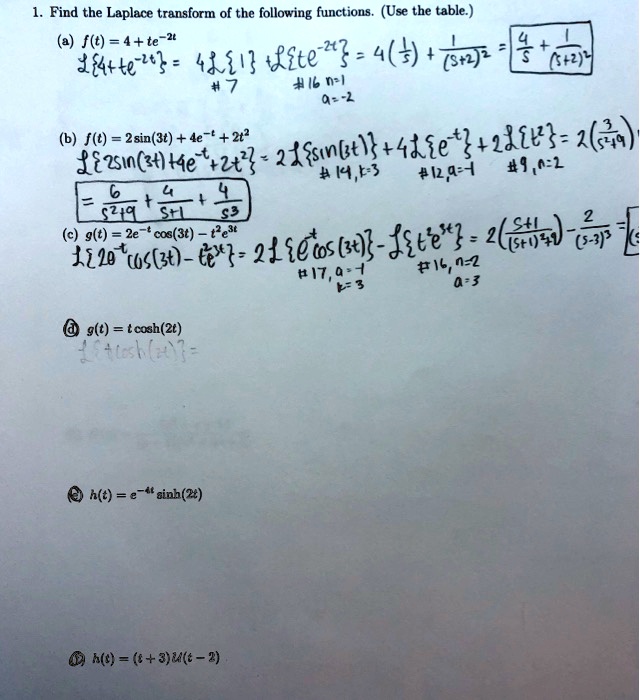 1. Find the Laplace transform of the following functions. (Use the table.)
(a) f(t) = 4 + te^{-2t}
ℒ{4+te^{-2t}} = 4ℒ{1} + ℒ{te^{-2t}} = 4(1/s) + 1/(s+2)² = 4/s + 1/(s+2)²
#7 #16 n=1
a=-2
(b) f(t) = 2 sin(3t) + 4e^{-t} + 2t²
ℒ{2sin(3t)+4e^{-t}+2t²} = 2ℒ{sin(3t)} + 4ℒ{e^{-t}} + 2ℒ{t²} = 2(3/s²+9)
#14, k=3 #12, a=-1 #9, n=2
= 6/s²+9 + 4/s+1 + 4/s3
(c) g(t) = 2e^{-t} cos(3t) − t²e^{3t}
ℒ{2e^{-t}cos(3t) − t²e^{3t}} = 2ℒ{e^{-t}cos(3t)} − ℒ{t²e^{3t}} = 2(s+1/(s+1)²+9) − 2/(s-3)³ =
#17, a=-1 #16, n=2
k=3 a=3
(d) g(t) = t cosh(2t)
ℒ{tcosh(2t)} =
(e) h(t) = e^{-4t} sinh(2t)
(f) h(t) = (t + 3)𝒰(t − 2)